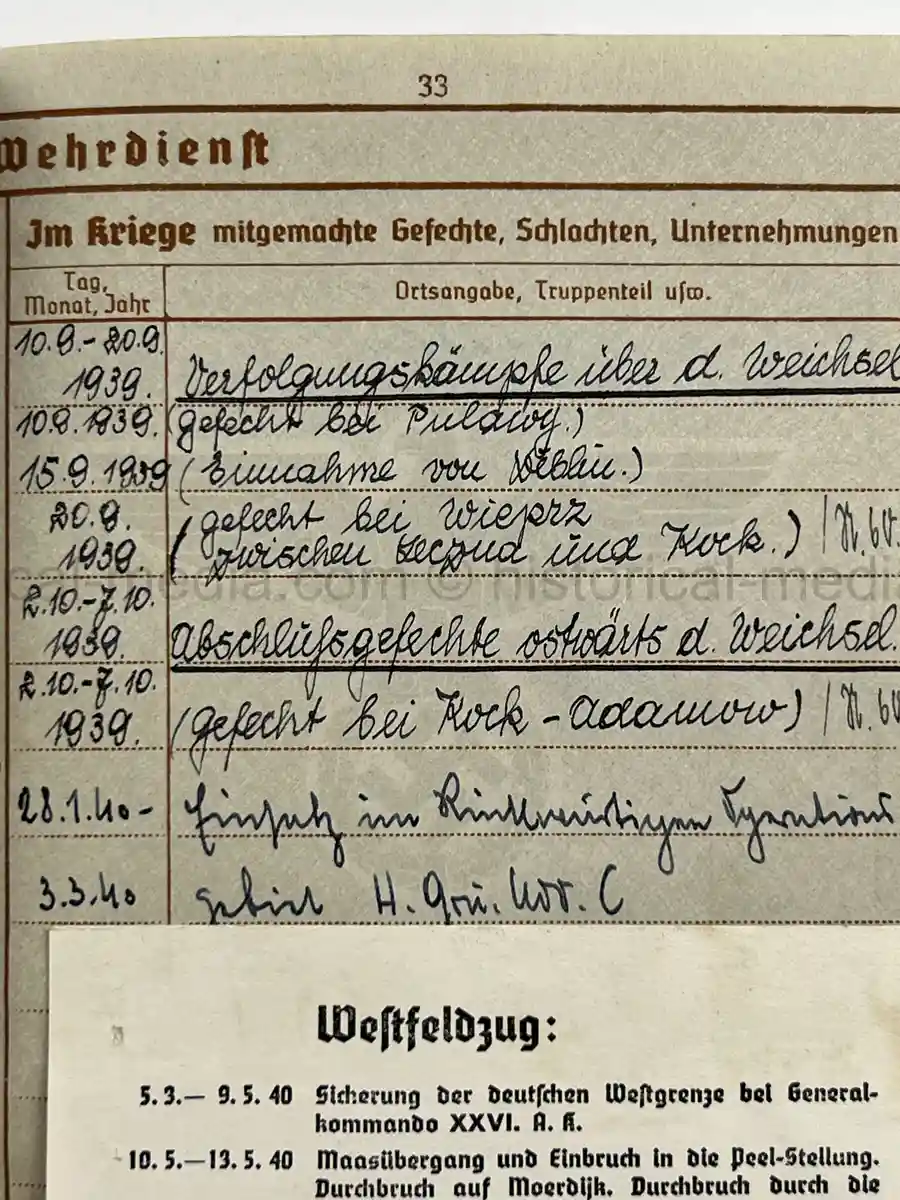 33
Wehrdienst
Im Kriege mitgemachte Gefechte, Schlachten, Unternehmungen
Tag, Monat, Jahr
Ortsangabe, Truppenteil usw.
10.9.-20.9. 1939. Verfolgungskämpfe über d. Weichsel
10.9.1939. (Gefecht bei Pulawy.)
15.9.1939 (Einnahme von Deblin.)
20.9. (Gefecht bei Wieprz
1939. (zwischen und Kock.)
2.10.-7.10.
1939. Abschlußgefechte ostwärts d. Weichsel.
2.10.-7.10.
1939. (Gefecht bei Kock-Adamow)
28.1.40- Einsatz im Rückwärtigen Operations
3.3.40 gebiet H. Gru. Kdo. C
historical-media
Westfeldzug:
5. 3.— 9. 5. 40 Sicherung der deutschen Westgrenze bei General-
kommando XXVI. A. K.
10. 5.—13. 5. 40 Maasübergang und Einbruch in die Peel-Stellung.
Durchbruch auf Moerdijk. Durchbruch durch die